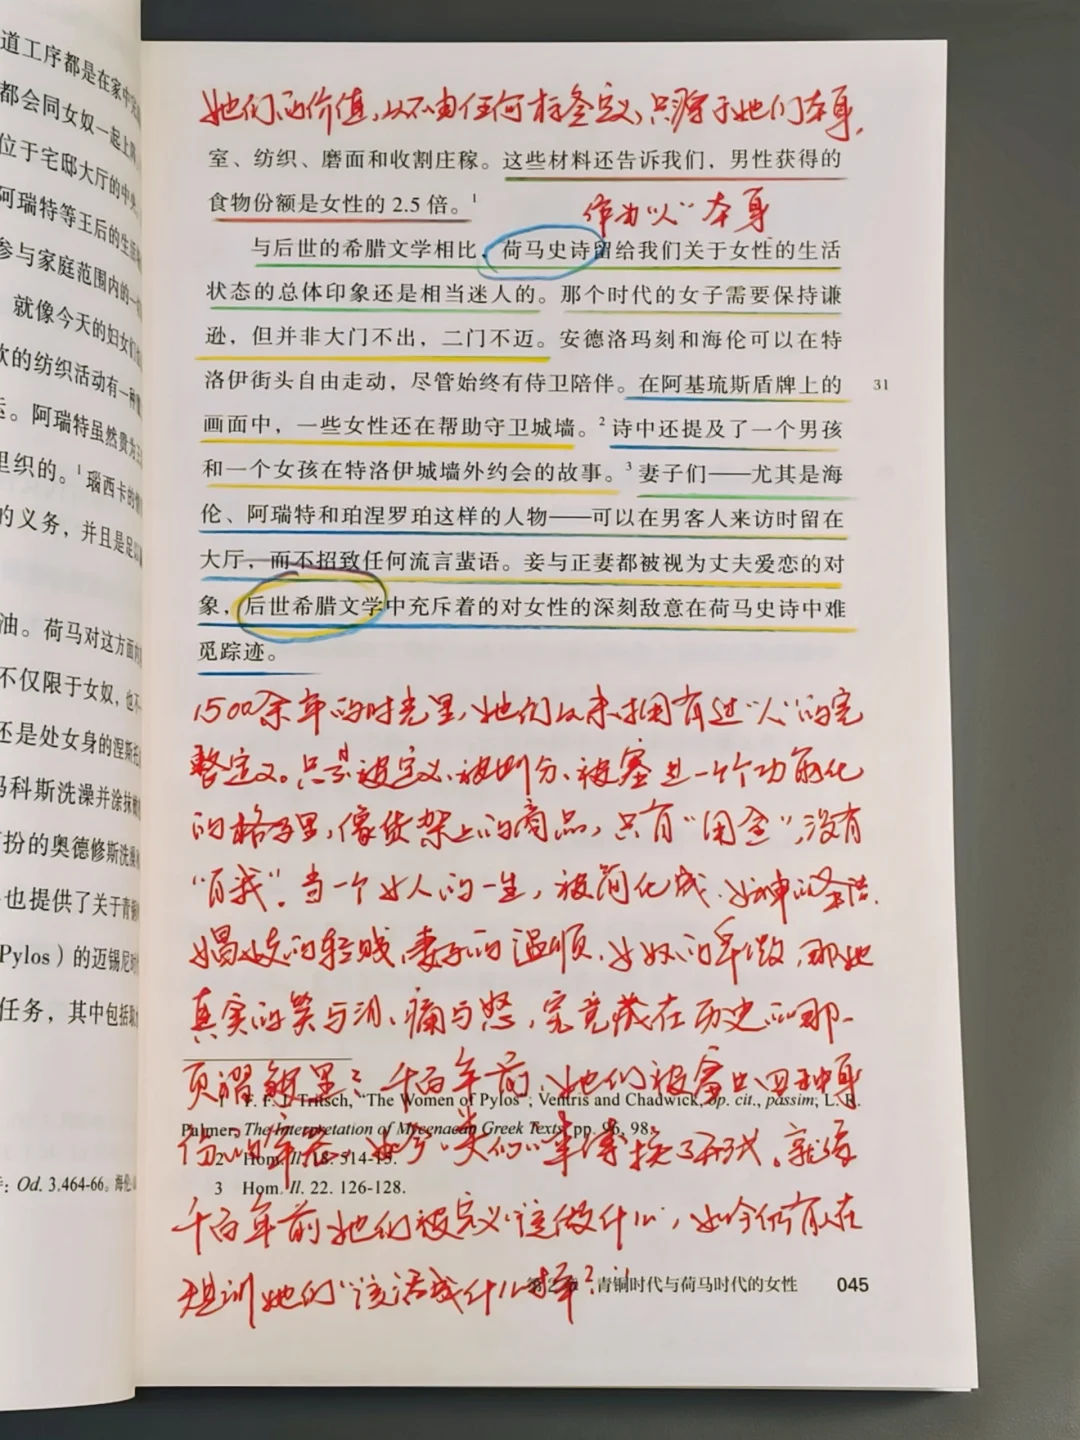 道工序都是在家中完
都会同女奴一起上
位于宅邸大厅的中央
阿瑞特等王后的生活
参与家庭范围内的一
就像今天的妇女们
欢的纺织活动有一种
。阿瑞特虽然贵为王
里织的。¹瑙西卡的
的义务，并且是足以
油。荷马对这方面内
不仅限于女奴，也不
还是处女身的涅斯托
马科斯洗澡并涂抹
扮的奥德修斯洗澡
也提供了关于青铜
Pylos）的迈锡尼时
任务，其中包括取
：Od. 3.464-66。海伦
她们的价值，从不由任何标签定义，只源于她们本身，
作为“人”本身
室、纺织、磨面和收割庄稼。这些材料还告诉我们，男性获得的
食物份额是女性的 2.5 倍。¹
与后世的希腊文学相比，荷马史诗留给我们关于女性的生活
状态的总体印象还是相当迷人的。那个时代的女子需要保持谦
逊，但并非大门不出，二门不迈。安德洛玛刻和海伦可以在特
洛伊街头自由走动，尽管始终有侍卫陪伴。在阿基琉斯盾牌上的
31
画面中，一些女性还在帮助守卫城墙。²诗中还提及了一个男孩
和一个女孩在特洛伊城墙外约会的故事。³妻子们——尤其是海
伦、阿瑞特和珀涅罗珀这样的人物——可以在男客人来访时留在
大厅，而不招致任何流言蜚语。妾与正妻都被视为丈夫爱恋的对
象，后世希腊文学中充斥着的对女性的深刻敌意在荷马史诗中难
觅踪迹。
1500余年的时光里，她们从未拥有过“人”的完
整定义。只是被定义、被划分、被塞进一个个功能化
的格子里，像货架上的商品，只有“用途”，没有
“自我”。当一个女人的一生，被简化成、女神的圣洁、
娼妓的轻贱、妻子的温顺、女奴的卑微，那她
真实的笑与泪、痛与怒，究竟藏在历史的哪一
页褶皱里？千百年前，她们被塞进四种身
份的，如今，换了形式。就像
千百年前她们被定义“该做什么”，如今仍有人在
规训她们“该活成什么样”？
1 F. F. J. Tritsch, “The Women of Pylos”; Ventris and Chadwick, op. cit., passim; L. R.
Palmer, The Interpretation of Mycenaean Greek Texts, pp. 96, 98.
2 Hom. Il. 18. 514-15.
3 Hom. Il. 22. 126-128.
第2章 青铜时代与荷马时代的女性 045